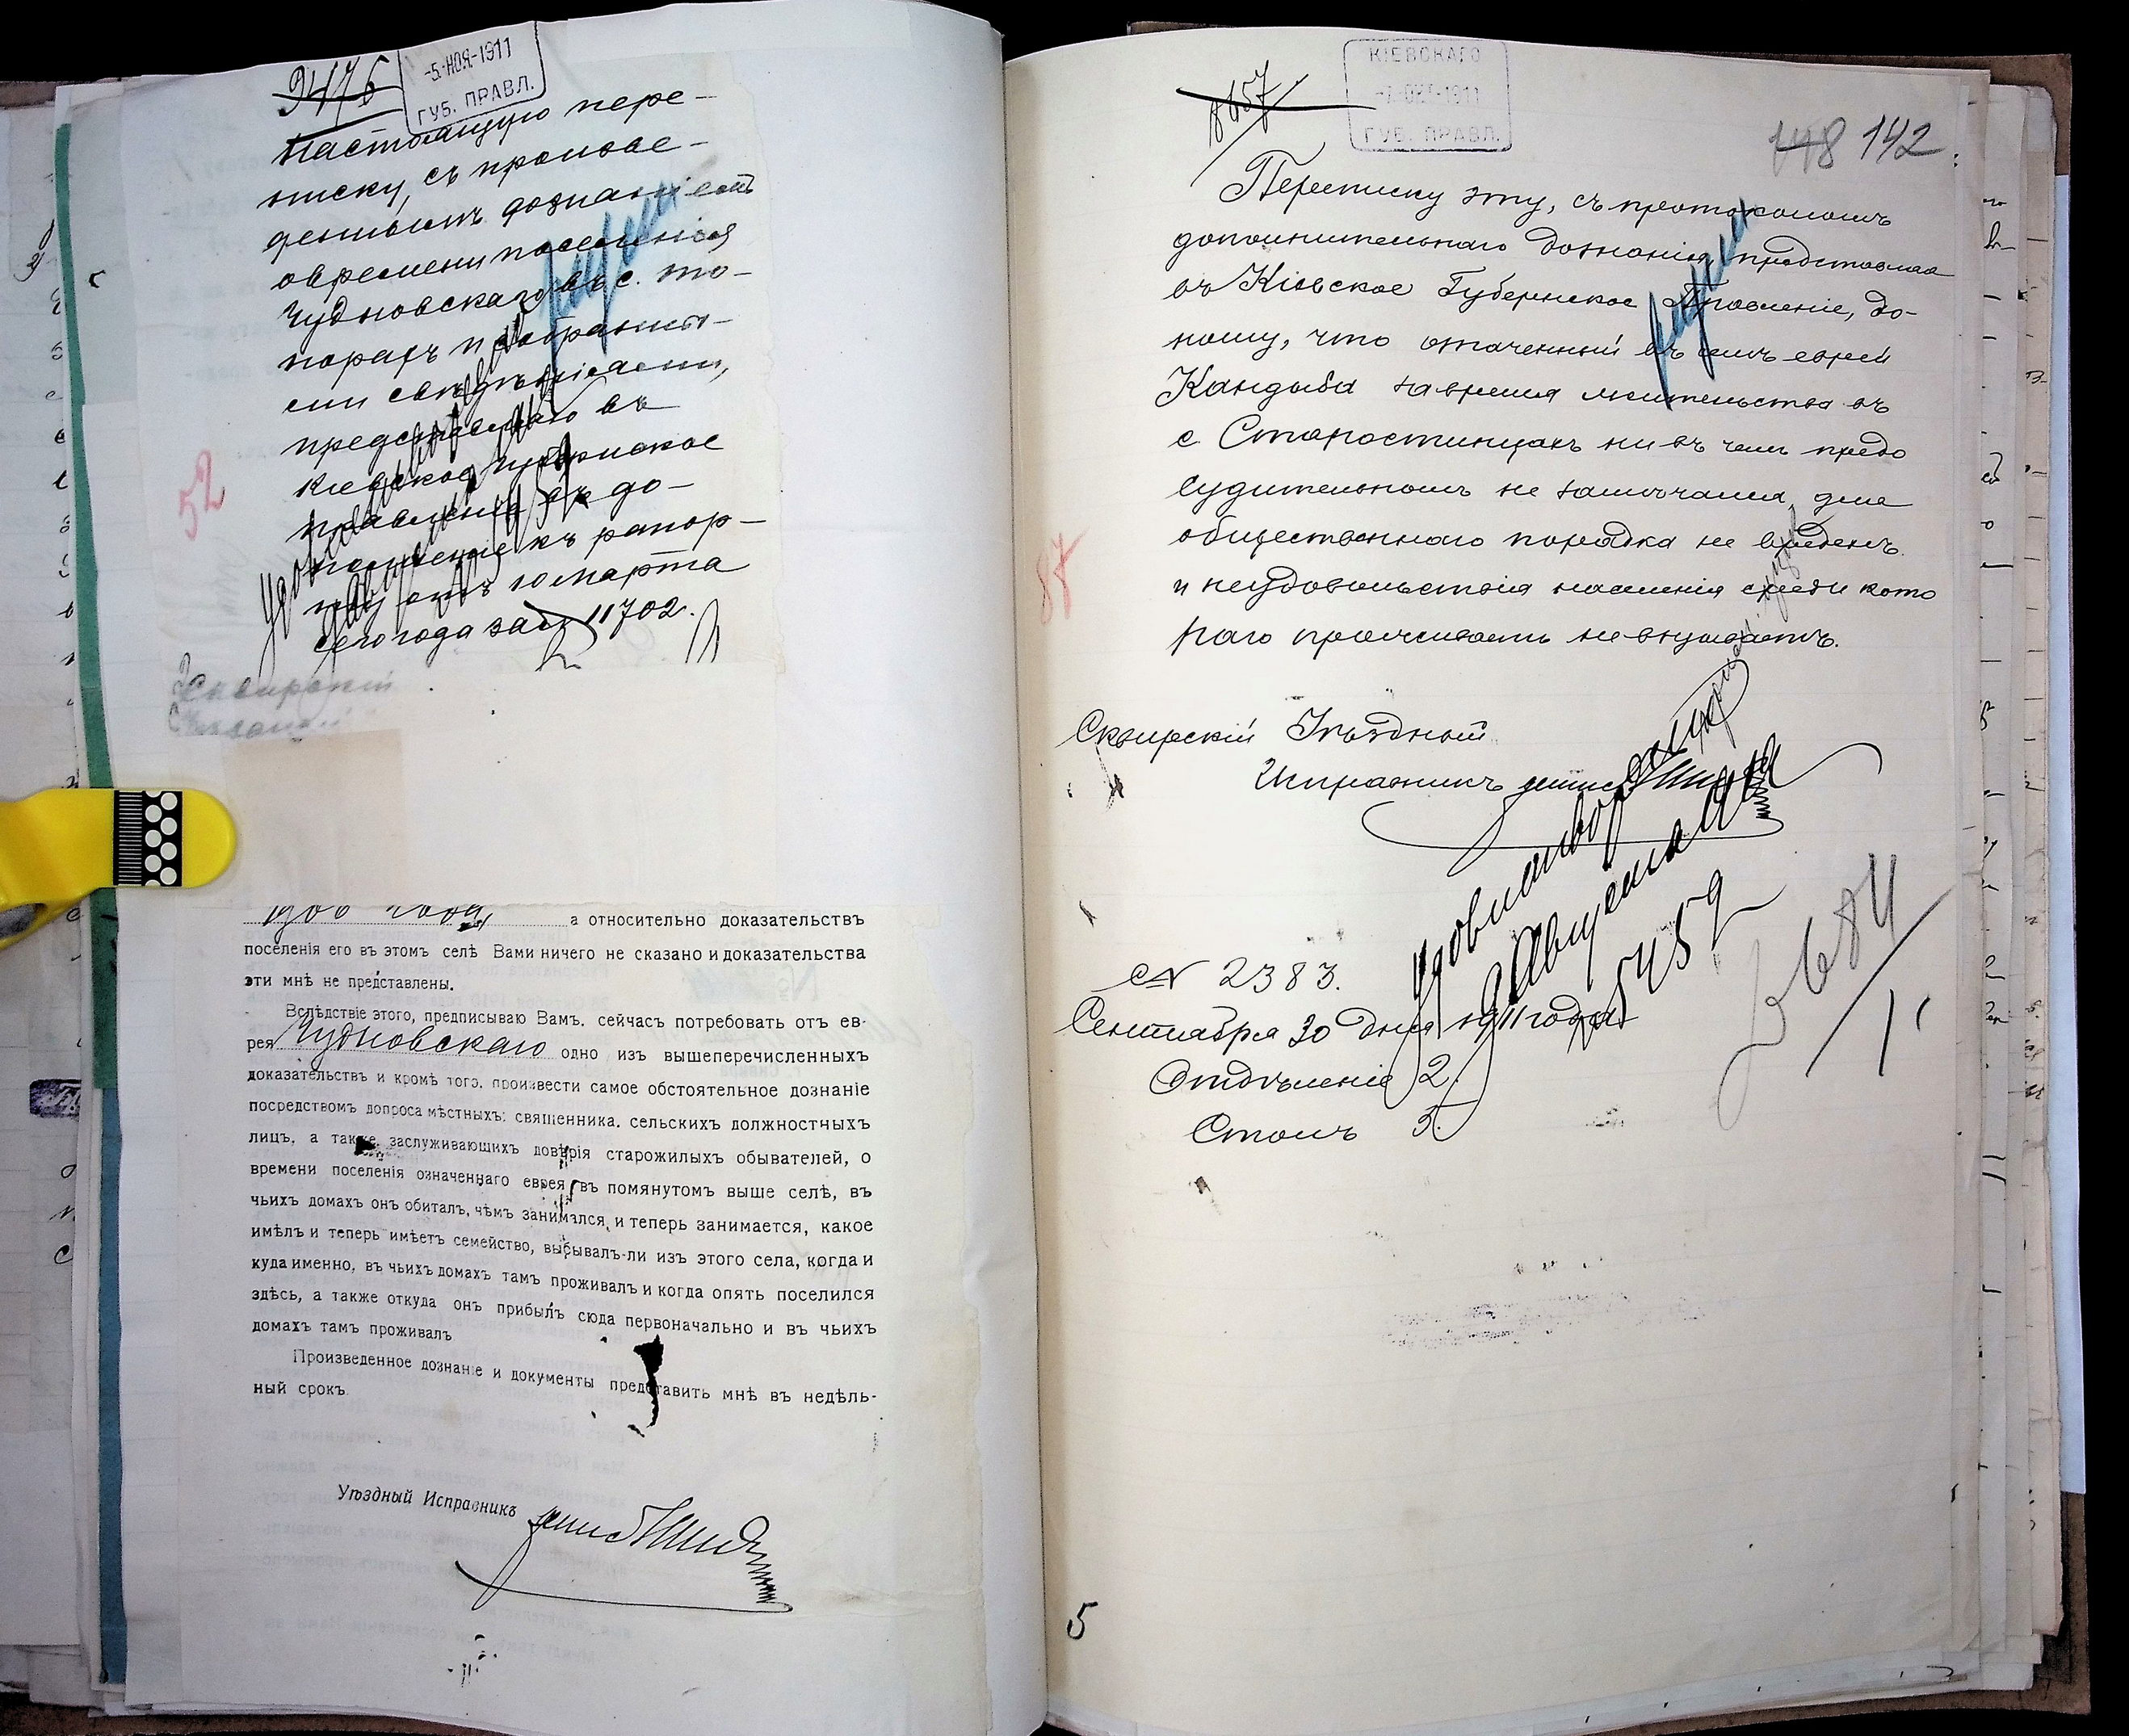 9476
-5-НОЯ-1911
ГУБ. ПРАВЛ.
Настоящую пере-
писку, съ произве-
деннымъ дознаніемъ
о времени поселенія
Чудновскаго въ с. То-
порахъ и собранны-
ми свѣдѣніями,
представляю въ
Кіевское Губернское
Правленіе въ до-
полненіе къ рапор-
ту отъ 10 марта
сего года за № 11702.
52
Сквирскій
1900 года а относительно доказательствъ
поселенія его въ этомъ селѣ Вами ничего не сказано и доказательства
эти мнѣ не представлены.
Вслѣдствіе этого, предписываю Вамъ. сейчасъ потребовать отъ ев-
рея Чудновскаго одно изъ вышеперечисленныхъ
доказательствъ и кромѣ того. произвести самое обстоятельное дознаніе
посредствомъ допроса мѣстныхъ: священника. сельскихъ должностныхъ
лицъ, а также заслуживающихъ довѣрія старожилыхъ обывателей, о
времени поселенія означеннаго еврея въ помянутомъ выше селѣ, въ
чьихъ домахъ онъ обиталъ, чѣмъ занимался и теперь занимается, какое
имѣлъ и теперь имѣетъ семейство, выбывалъ-ли изъ этого села, когда и
куда именно, въ чьихъ домахъ тамъ проживалъ и когда опять поселился
здѣсь, а также откуда онъ прибылъ сюда первоначально и въ чьихъ
домахъ тамъ проживалъ
Произведенное дознаніе и документы представить мнѣ въ недѣль-
ный срокъ
Уѣздный Исправникъ
8657
КІЕВСКАГО
-7-ОКТ-1911
ГУБ. ПРАВЛ.
148 142
Переписку эту, съ протоколомъ
дополнительнаго дознанія, представляя
въ Кіевское Губернское Правленіе, до-
ношу, что означенный въ немъ еврей
Кандыба за время жительства въ
с. Старостинцахъ ни въ чемъ предо
судительномъ не замѣчался, для
общественнаго порядка не вреденъ
и неудовольствія населенія среди кото
раго проживаетъ не внушаетъ.
87
Сквирскій Уѣздный
Исправникъ
№ 2383.
Сентября 30 дня 1911 года
Отдѣленіе 2.
Столъ 3.
5459
5